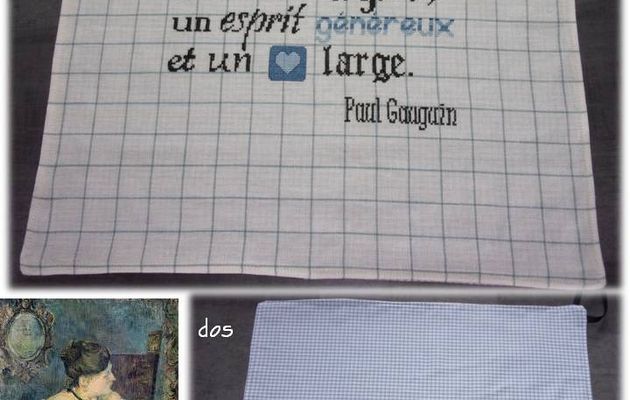 un esprit généreux
et un large.
Paul Gauguin
dos